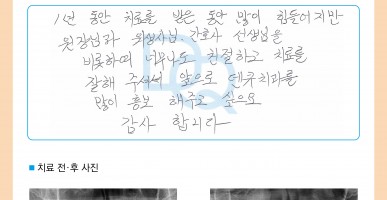 1년 동안 치료를 받은 동안 많이 힘들어지만
원장님과 위생사님. 간호사 선생님을
비롯하여 너무나도 친절하고 치료를
잘해 주셔서 앞으로 덴큐치과를
많이 홍보 해주고 싶으오
감사 합니다
■ 치료 전·후 사진